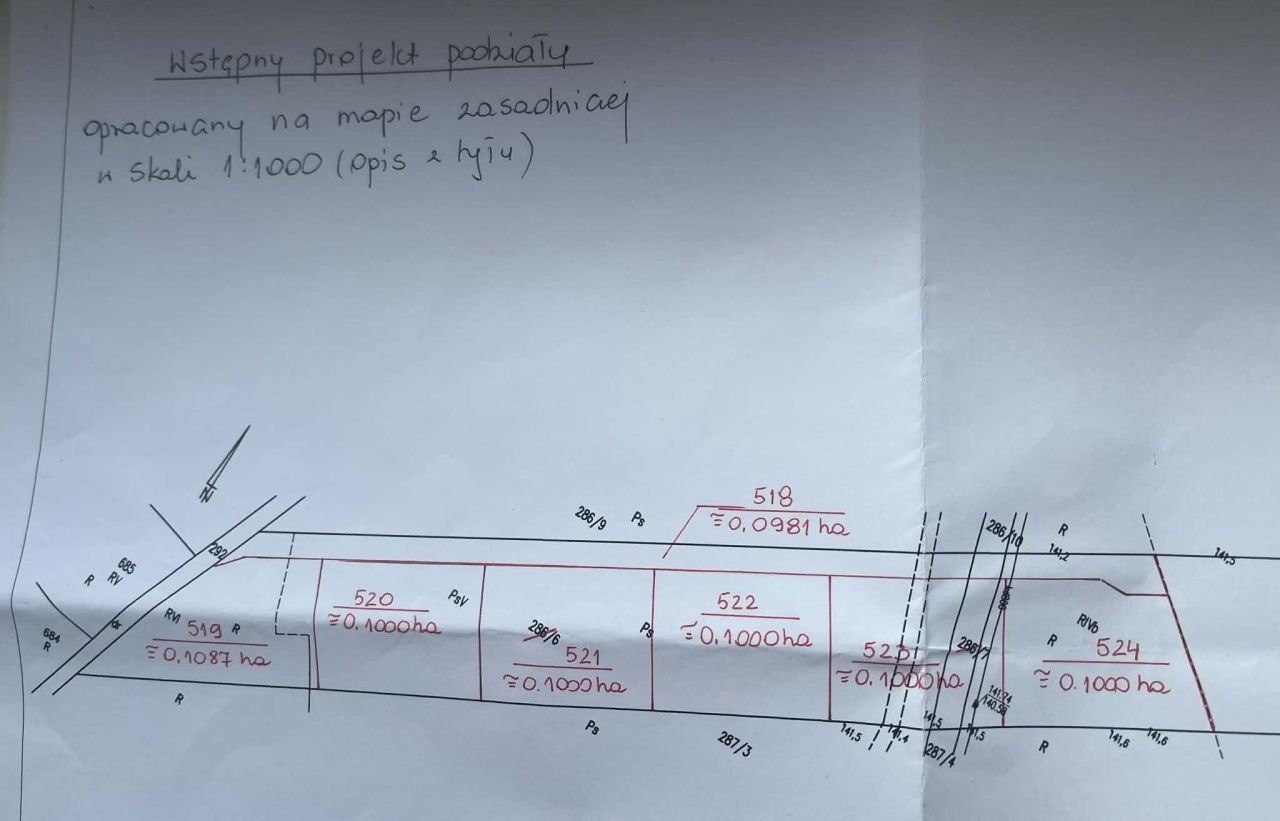 Wstępny projekt podziału
opracowany na mapie zasadniczej
w skali 1:1000 (opis z tyłu)
N
518
≈0.0981 ha
286/9
Ps
286/10
R
141,2
141,5
292
685
R
RV
684
R
dr
RVI
519
R
≈0.1087 ha
520
≈0.1000 ha
PsV
286/6
521
≈0.1000 ha
Ps
522
≈0.1000 ha
523
≈0.1000 ha
286/7
141.74
140.58
RIVb
R
524
≈0.1000 ha
R
Ps
287/3
141,5
141,4
141,5
287/4
141,5
R
141,6
141,6